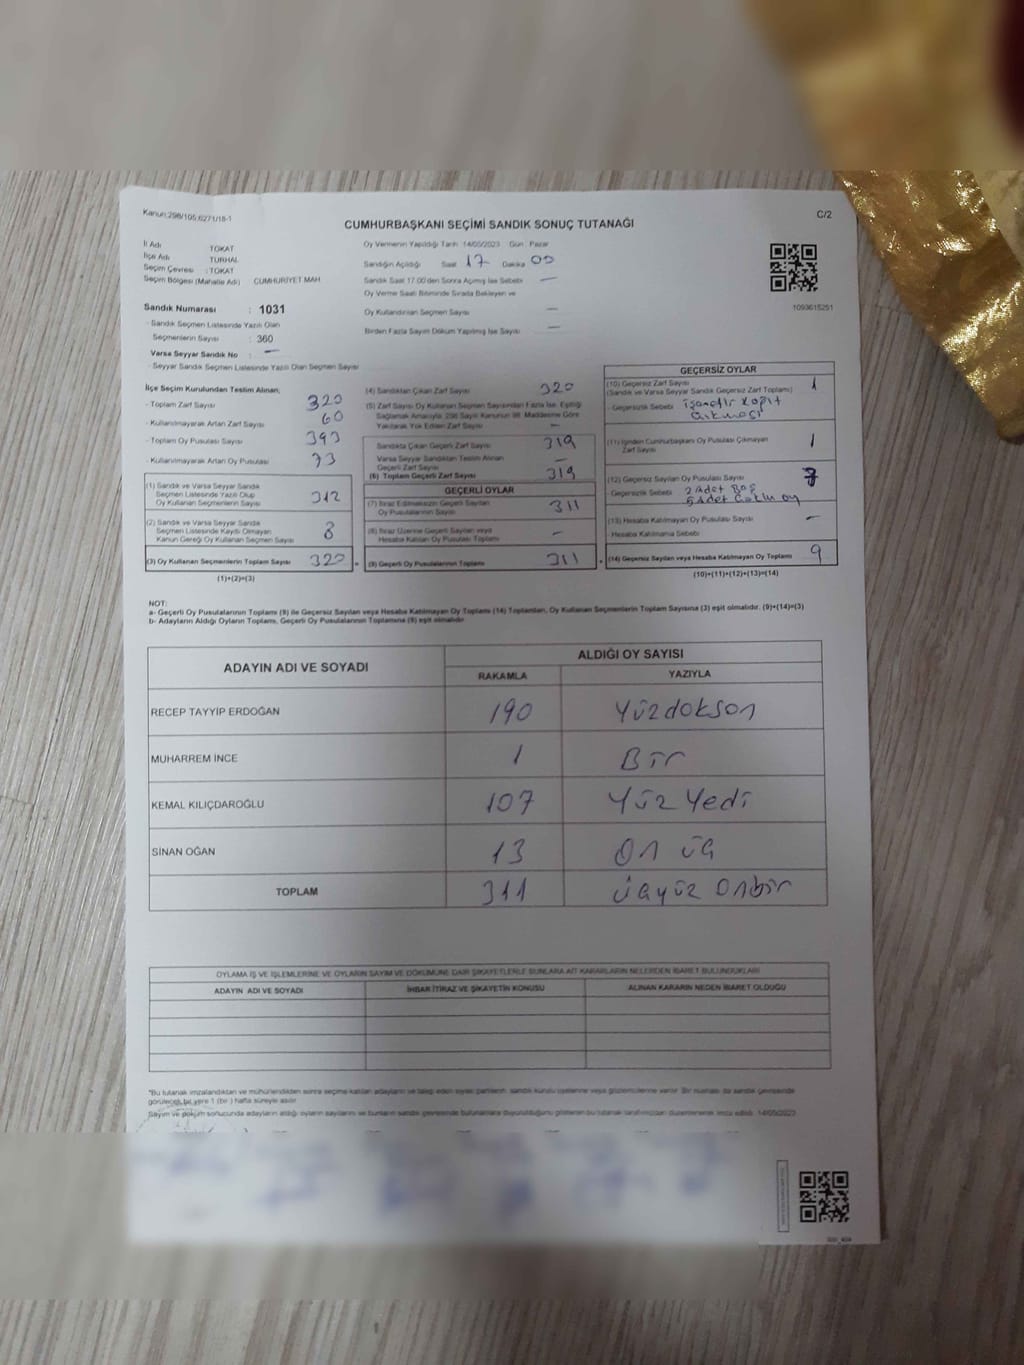 Kanun:298/105;6271/18-1
C/2
CUMHURBAŞKANI SEÇİMİ SANDIK SONUÇ TUTANAĞI
İl Adı TOKAT
İlçe Adı TURHAL
Seçim Çevresi : TOKAT
Seçim Bölgesi (Mahalle Adı) CUMHURİYET MAH
Oy Vermenin Yapıldığı Tarih 14/05/2023 Gün Pazar
Sandığın Açıldığı Saat 17 Dakika 00
Sandık Saat 17:00'den Sonra Açılmış İse Sebebi —
Oy Verme Saati Bitiminde Sırada Bekleyen ve
Oy Kullandırılan Seçmen Sayısı —
Birden Fazla Sayım Döküm Yapılmış İse Sayısı —
1093615251
Sandık Numarası : 1031
- Sandık Seçmen Listesinde Yazılı Olan
Seçmenlerin Sayısı : 360
Varsa Seyyar Sandık No —
- Seyyar Sandık Seçmen Listesinde Yazılı Olan Seçmen Sayısı
İlçe Seçim Kurulundan Teslim Alınan;
- Toplam Zarf Sayısı
- Kullanılmayarak Artan Zarf Sayısı 60
- Toplam Oy Pusulası Sayısı 393
- Kullanılmayarak Artan Oy Pusulası 73
(1) Sandık ve Varsa Seyyar Sandık
Seçmen Listesinde Yazılı Olup
Oy Kullanan Seçmenlerin Sayısı 312
(2) Sandık ve Varsa Seyyar Sandık
Seçmen Listesinde Kaydı Olmayan
Kanun Gereği Oy Kullanan Seçmen Sayısı 8
(3) Oy Kullanan Seçmenlerin Toplam Sayısı 320
(1)+(2)=(3)
(4) Sandıktan Çıkan Zarf Sayısı 320
(5) Zarf Sayısı Oy Kullanan Seçmen Sayısından Fazla İse, Eşitliği
Sağlamak Amacıyla, 298 Sayılı Kanunun 98. Maddesine Göre
Yakılarak Yok Edilen Zarf Sayısı —
Sandıkta Çıkan Geçerli Zarf Sayısı 319
Varsa Seyyar Sandıktan Teslim Alınan
Geçerli Zarf Sayısı —
(6) Toplam Geçerli Zarf Sayısı 319
GEÇERLİ OYLAR
(7) İtiraz Edilmeksizin Geçerli Sayılan
Oy Pusulası Sayısı 311
(8) İtiraz Üzerine Geçerli Sayılan veya
Hesaba Katılan Oy Pusulası Toplamı —
(9) Geçerli Oy Pusulalarının Toplamı 311
GEÇERSİZ OYLAR
(10) Geçersiz Zarf Sayısı
(Sandık ve Varsa Seyyar Sandık Geçersiz Zarf Toplamı) 1
- Geçersizlik Sebebi
(11) İçinden Cumhurbaşkanı Oy Pusulası Çıkmayan
Zarf Sayısı 1
(12) Geçersiz Sayılan Oy Pusulası Sayısı 7
- Geçersizlik Sebebi 2 Adet Boş
5 Adet Çoklu oy
(13) Hesaba Katılmayan Oy Pusulası Sayısı —
- Hesaba Katılmama Sebebi
(14) Geçersiz Sayılan veya Hesaba Katılmayan Oy Toplamı 9
(10)+(11)+(12)+(13)=(14)
NOT:
a- Geçerli Oy Pusulalarının Toplamı (9) ile Geçersiz Sayılan veya Hesaba Katılmayan Oy Toplamı (14) Toplamları, Oy Kullanan Seçmenlerin Toplam Sayısına (3) eşit olmalıdır. (9)+(14)=(3)
b- Adayların Aldığı Oyların Toplamı, Geçerli Oy Pusulalarının Toplamına (9) eşit olmalıdır
ADAYIN ADI VE SOYADI
ALDIĞI OY SAYISI
RAKAMLA YAZIYLA
RECEP TAYYİP ERDOĞAN 190 Yüzdokson
MUHARREM İNCE 1 Bir
KEMAL KILIÇDAROĞLU 107 Yüz Yedi
SİNAN OĞAN 13 On üç
TOPLAM 311 üçyüz Onbir
OYLAMA İŞ VE İŞLEMLERİNE VE OYLARIN SAYIM VE DÖKÜMÜNE DAİR ŞİKAYETLERLE BUNLARA AİT KARARLARIN NELERDEN İBARET BULUNDUKLARI
ADAYIN ADI VE SOYADI İHBAR İTİRAZ VE ŞİKAYETİN KONUSU ALINAN KARARIN NEDEN İBARET OLDUĞU
*Bu tutanak imzalandıktan ve mühürlendikten sonra seçime katılan adayların ve talep eden siyasi partilerin sandık kurulu üyelerine veya gözlemcilerine verilir. Bir nüshası da sandık çevresinde
görülecek bir yere 1 (bir ) hafta süreyle asılır.
Sayım ve döküm sonucunda adayların aldığı oyların sayılarını ve bunların sandık çevresinde bulunanlara duyurulduğunu gösteren bu tutanak tarafımızdan düzenlenerek imza edildi. 14/05/2023